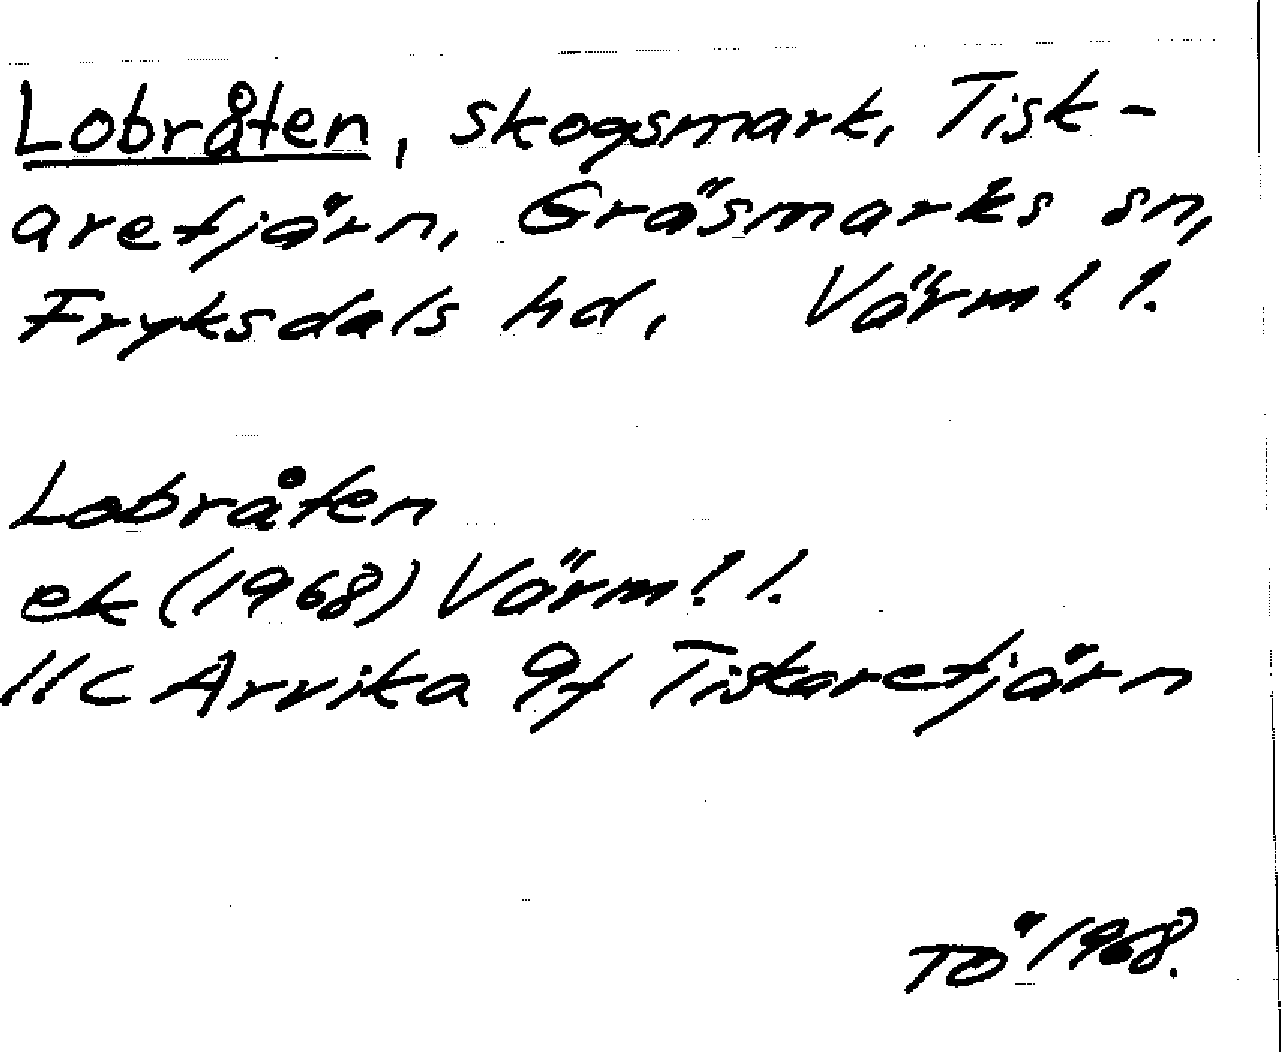 Lobråten, skogsmark, Tisk-
aretjärn, Gräsmarks sn,
Fryksdals hd, Värml. l.
Lobråten
ek (1968) Värml. l.
11C Arvika 9f Tiskaretjärn
TÖ 1968.